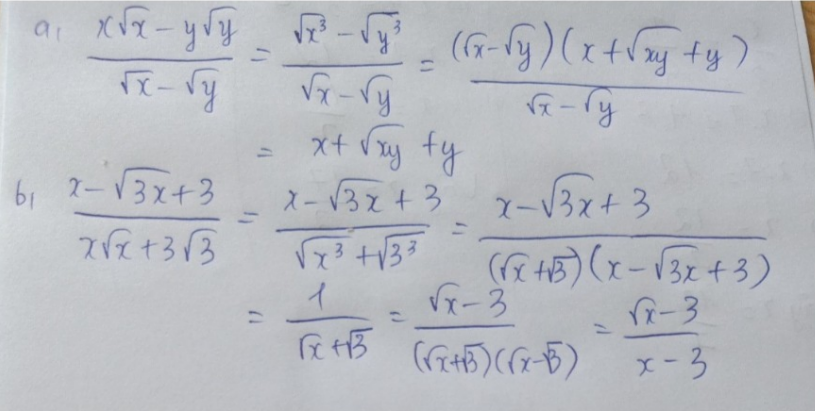 a, (x√x − y√y)/(√x − √y) = (√x³ − √y³)/(√x − √y) = ((√x−√y)(x+√xy+y))/(√x−√y)
= x+ √xy +y
b, (x−√3x+3)/(x√x+3√3) = (x−√3x+3)/(√x³+√3³) = (x−√3x+3)/((√x+√3)(x−√3x+3))
= 1/(√x+√3) = (√x−3)/((√x+√3)(√x−√3)) = (√x−3)/(x−3)